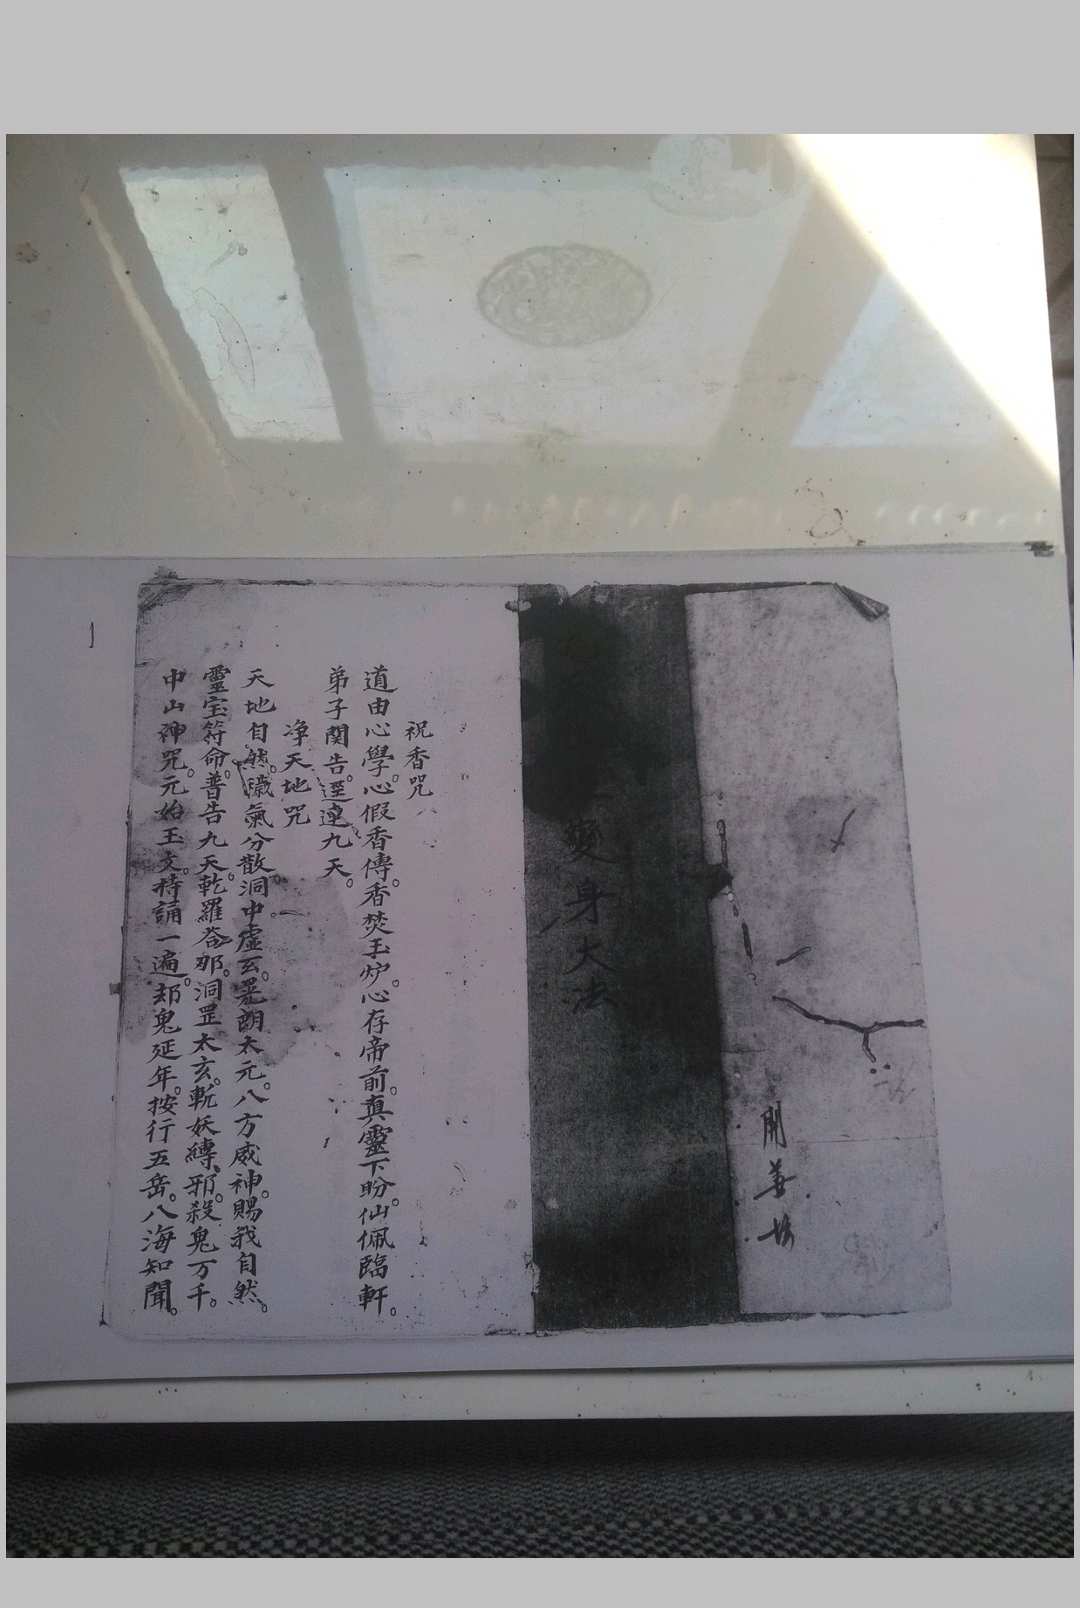 變身大法
祝香咒
道由心學。心假香傳。香焚玉炉。心存帝前。真靈下盼。仙佩臨軒。
弟子関告。逕達九天。
净天地咒
天地自然。穢氣分散。洞中虛玄。晃朗太元。八方威神。賜我自然。
靈宝符命。普告九天。乾羅荅那。洞罡太玄。斬妖縛邪。殺鬼万千。
中山神咒。元始玉文。持誦一遍。却鬼延年。按行五岳。八海知聞。